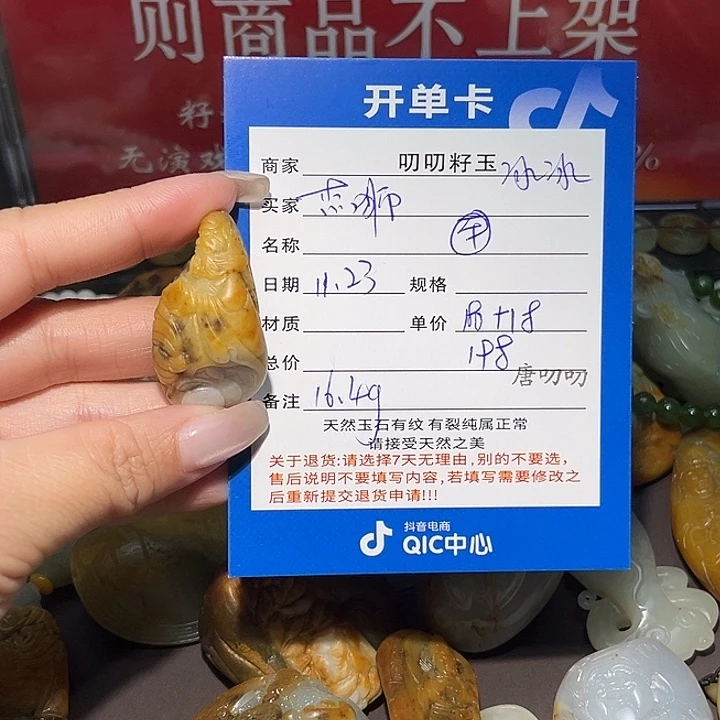 则商品不上架
籽
无演戏
%
开单卡
商家 叨叨籽玉 冰冰
买家
名称
日期 11.23 规格
材质 单价
总价 198
唐叨叨
备注 16.4g
天然玉石有纹 有裂纯属正常
请接受天然之美
关于退货:请选择7天无理由,别的不要选,
售后说明不要填写内容,若填写需要修改之
后重新提交退货申请!!!
抖音电商
QIC中心